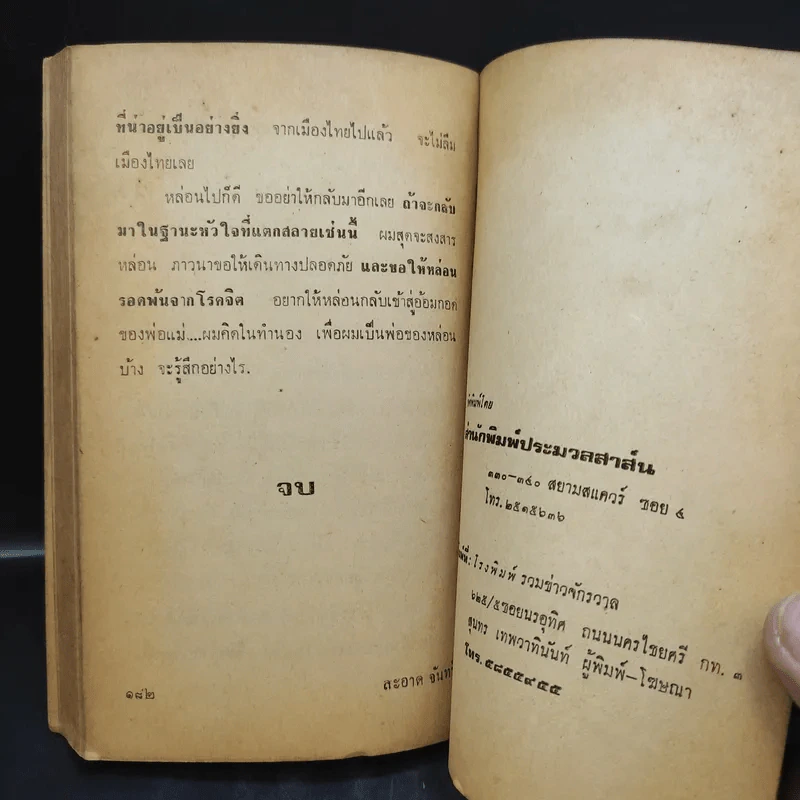 ที่น่าอยู่เป็นอย่างยิ่ง จากเมืองไทยไปแล้ว จะไม่ลืม
เมืองไทยเลย
หล่อนไปก็ดี ขออย่าให้กลับมาอีกเลย ถ้าจะกลับ
มาในฐานะหัวใจที่แตกสลายเช่นนี้ ผมสุดจะสงสาร
หล่อน ภาวนาขอให้เดินทางปลอดภัย และขอให้หล่อน
รอดพ้นจากโรคจิต อยากให้หล่อนกลับเข้าสู่อ้อมกอด
ของพ่อแม่....ผมคิดในทำนอง เพื่อผมเป็นพ่อของหล่อน
บ้าง จะรู้สึกอย่างไร.
จบ
๑๘๒
สะอาด
พิมพ์โดย
สำนักพิมพ์ประมวลสาส์น
๓๓๐-๓๔๐ สยามสแควร์ ซอย ๔
โทร. ๒๕๑๕๖๓๖
โรงพิมพ์ รวมข่าวจักรวาล
๖๒๕/๕ซอยนรอุทิศ ถนนนครไชยศรี กท. ๓
สุนทร เทพวาทินันท์ ผู้พิมพ์-โฆษณา
โทร. ๕๘๕๕๙๕๕